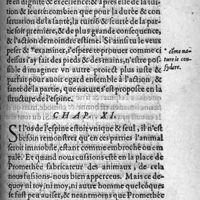 en dignité & excellence: & apres elle de la situa-
tion & leurs combien que pour la durée & con-
seruation de la santé, la cuitié & seureté de la par-
tie soit premiere, & de plus grand consequence,
& l'action demontre estime. Si ainsi tu le veux
peser & *examiner, i'espere te prouuer comme cy
dessus i'ay fait des pieds & des mains, n'estre possi-
ble d'imaginer vn autre proiect plus iuste &
parfait pour auoir egard ensemble à l'action, &
santé de la partie, que nature s'est proposée en la
structure de l'espine.
* côme na-
ture le con-
sylere.
CHAP. XI.
SI l'os de l'espine estoit vnique & seul, il n'est
besoin remonstrer qu'en ces parties l'animal
seroit immobile, estant comme embroché ou em-
palé. Et quand nous eussions esté en la place de
Promethée fabricateur des animaux, de cela
nous fussions-nous bien apperceus. Mais ce de-
quoy ni toy, ni moy, ni autre homme quelcóques
se fust peu auiser, & neantmoins que Promethée